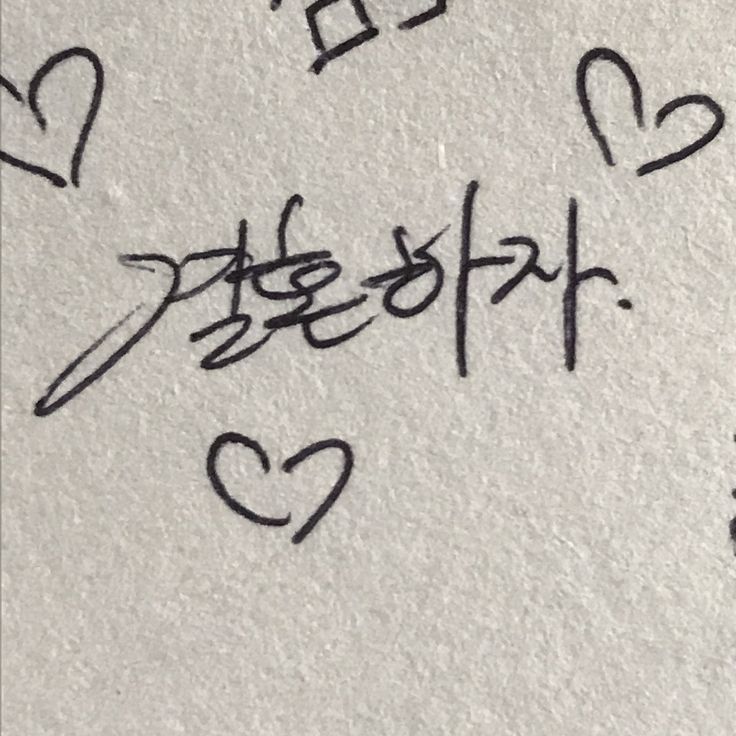 결혼하자.